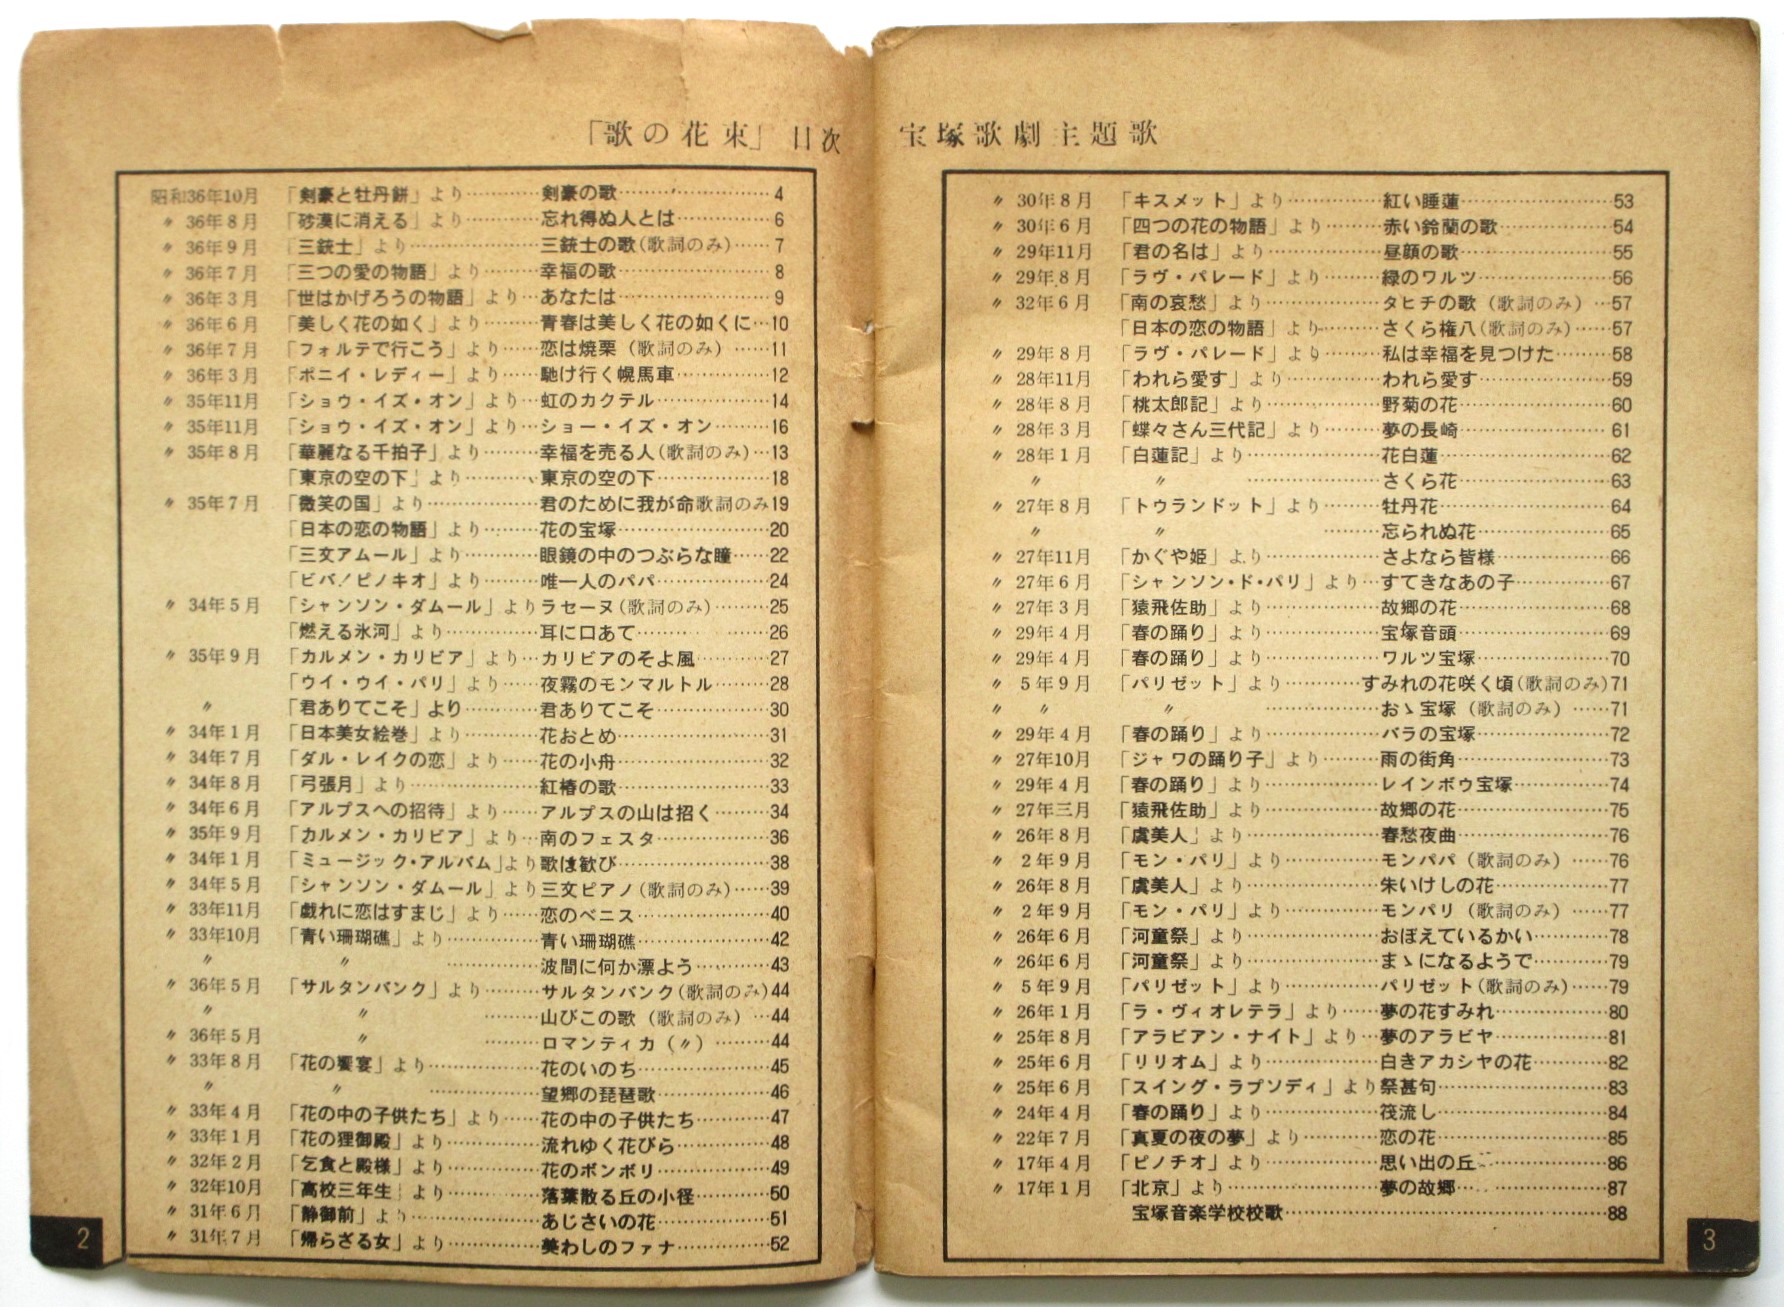 「歌の花束」目次
昭和36年10月 「剣豪と牡丹餅」より…………剣豪の歌……………………4
〃 36年8月 「砂漠に消える」より…………忘れ得ぬ人とは……………6
〃 36年9月 「三銃士」より…………三銃士の歌(歌詞のみ)……7
〃 36年7月 「三つの愛の物語」より………幸福の歌……………………8
〃 36年3月 「世はかげろうの物語」より…あなたは……………………9
〃 36年6月 「美しく花の如く」より………青春は美しく花の如くに…10
〃 36年7月 「フォルテで行こう」より……恋は焼栗(歌詞のみ)……11
〃 36年3月 「ポニイ・レディー」より……馳け行く幌馬車……………12
〃 35年11月 「ショウ・イズ・オン」より…虹のカクテル………………14
〃 35年11月 「ショウ・イズ・オン」より…ショー・イズ・オン………16
〃 35年8月 「華麗なる千拍子」より………幸福を売る人(歌詞のみ)…13
「東京の空の下」より…………東京の空の下………………18
〃 35年7月 「微笑の国」より………………君のために我が命歌詞のみ19
「日本の恋の物語」より………花の宝塚……………………20
「三文アムール」より…………眼鏡の中のつぶらな瞳……22
「ビバ!ピノキオ」より………唯一人のパパ………………24
〃 34年5月 「シャンソン・ダムール」よりラセーヌ(歌詞のみ)………25
「燃える氷河」より……………耳に口あて…………………26
〃 35年9月 「カルメン・カリビア」より…カリビアのそよ風…………27
「ウイ・ウイ・パリ」より……夜霧のモンマルトル………28
〃 「君ありてこそ」より…………君ありてこそ………………30
〃 34年1月 「日本美女絵巻」より…………花おとめ……………………31
〃 34年7月 「ダル・レイクの恋」より……花の小舟……………………32
〃 34年8月 「弓張月」より…………………紅椿の歌……………………33
〃 34年6月 「アルプスへの招待」より……アルプスの山は招く………34
〃 35年9月 「カルメン・カリビア」より…南のフェスタ………………36
〃 34年1月 「ミュージック・アルバム」より歌は歓び……………………38
〃 34年5月 「シャンソン・ダムール」より三文ピアノ(歌詞のみ)……39
〃 33年11月 「戯れに恋はすまじ」より……恋のベニス…………………40
〃 33年10月 「青い珊瑚礁」より……………青い珊瑚礁…………………42
〃 〃 ……………波間に何か漂よう…………43
〃 36年5月 「サルタンバンク」より………サルタンバンク(歌詞のみ)44
〃 〃 ………山びこの歌(歌詞のみ)…44
〃 36年5月 〃 ………ロマンティカ(〃)………44
〃 33年8月 「花の饗宴」より………………花のいのち…………………45
〃 〃 ………………望郷の琵琶歌………………46
〃 33年4月 「花の中の子供たち」より……花の中の子供たち…………47
〃 33年1月 「花の狸御殿」より……………流れゆく花びら……………48
〃 32年2月 「乞食と殿様」より……………花のボンボリ………………49
〃 32年10月 「高校三年生」より……………落葉散る丘の小径…………50
〃 31年6月 「静御前」より…………………あじさいの花………………51
〃 31年7月 「帰らざる女」より……………美わしのファナ……………52
2
宝塚歌劇主題歌
〃 30年8月 「キスメット」より……………紅い睡蓮……………………53
〃 30年6月 「四つの花の物語」より………赤い鈴蘭の歌………………54
〃 29年11月 「君の名は」より………………昼顔の歌……………………55
〃 29年8月 「ラヴ・パレード」より………緑のワルツ…………………56
〃 32年6月 「南の哀愁」より………………タヒチの歌(歌詞のみ)…57
「日本の恋の物語」より………さくら権八(歌詞のみ)……57
〃 29年8月 「ラヴ・パレード」より………私は幸福を見つけた………58
〃 28年11月 「われら愛す」より……………われら愛す…………………59
〃 28年8月 「桃太郎記」より………………野菊の花……………………60
〃 28年3月 「蝶々さん三代記」より………夢の長崎……………………61
〃 28年1月 「白蓮記」より…………………花白蓮………………………62
〃 〃 …………………さくら花……………………63
〃 27年8月 「トゥランドット」より………牡丹花………………………64
〃 〃 ………忘られぬ花…………………65
〃 27年11月 「かぐや姫」より………………さよなら皆様………………66
〃 27年6月 「シャンソン・ド・パリ」より…すてきなあの子……………67
〃 27年3月 「猿飛佐助」より………………故郷の花……………………68
〃 29年4月 「春の踊り」より………………宝塚音頭……………………69
〃 29年4月 「春の踊り」より………………ワルツ宝塚…………………70
〃 5年9月 「パリゼット」より…………すみれの花咲く頃(歌詞のみ)71
〃 〃 〃 ………………おゝ宝塚(歌詞のみ)……71
〃 29年4月 「春の踊り」より………………バラの宝塚…………………72
〃 27年10月 「ジャワの踊り子」より………雨の街角……………………73
〃 29年4月 「春の踊り」より………………レインボウ宝塚……………74
〃 27年三月 「猿飛佐助」より………………故郷の花……………………75
〃 26年8月 「虞美人」より…………………春愁夜曲……………………76
〃 2年9月 「モン・パリ」より……………モンパパ(歌詞のみ)……76
〃 26年8月 「虞美人」より…………………朱いけしの花………………77
〃 2年9月 「モン・パリ」より……………モンパリ(歌詞のみ)……77
〃 26年6月 「河童祭」より…………………おぼえているかい…………78
〃 26年6月 「河童祭」より…………………まゝになるようで…………79
〃 5年9月 「パリゼット」より……………パリゼット(歌詞のみ)……79
〃 26年1月 「ラ・ヴィオレテラ」より……夢の花すみれ………………80
〃 25年8月 「アラビアン・ナイト」より…夢のアラビヤ………………81
〃 25年6月 「リリオム」より………………白きアカシヤの花…………82
〃 25年6月 「スイング・ラプソディ」より祭甚句………………………83
〃 24年4月 「春の踊り」より………………筏流し………………………84
〃 22年7月 「真夏の夜の夢」より…………恋の花………………………85
〃 17年4月 「ピノチオ」より………………思い出の丘…………………86
〃 17年1月 「北京」より……………………夢の故郷……………………87
宝塚音楽学校校歌…………………………………88
3